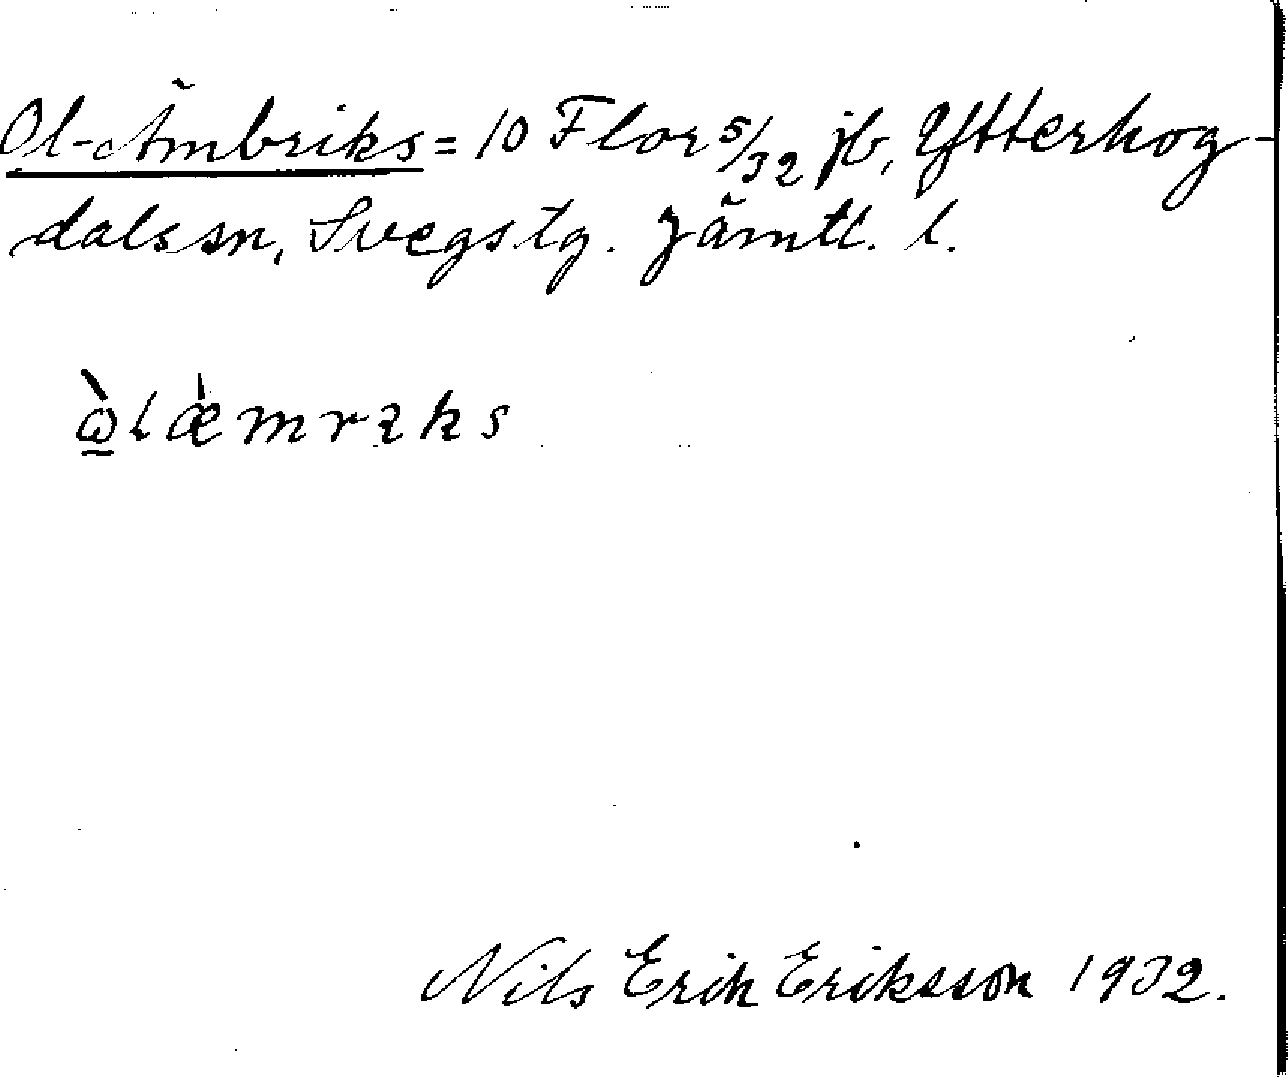 Ol-Ämbriks = 10 Flor 5/32 jb, Ytterhog-
dals sn, Svegs tg. Jämtl. l.
ὼlæ̀mrıks
Nils Erik Eriksson 1932.